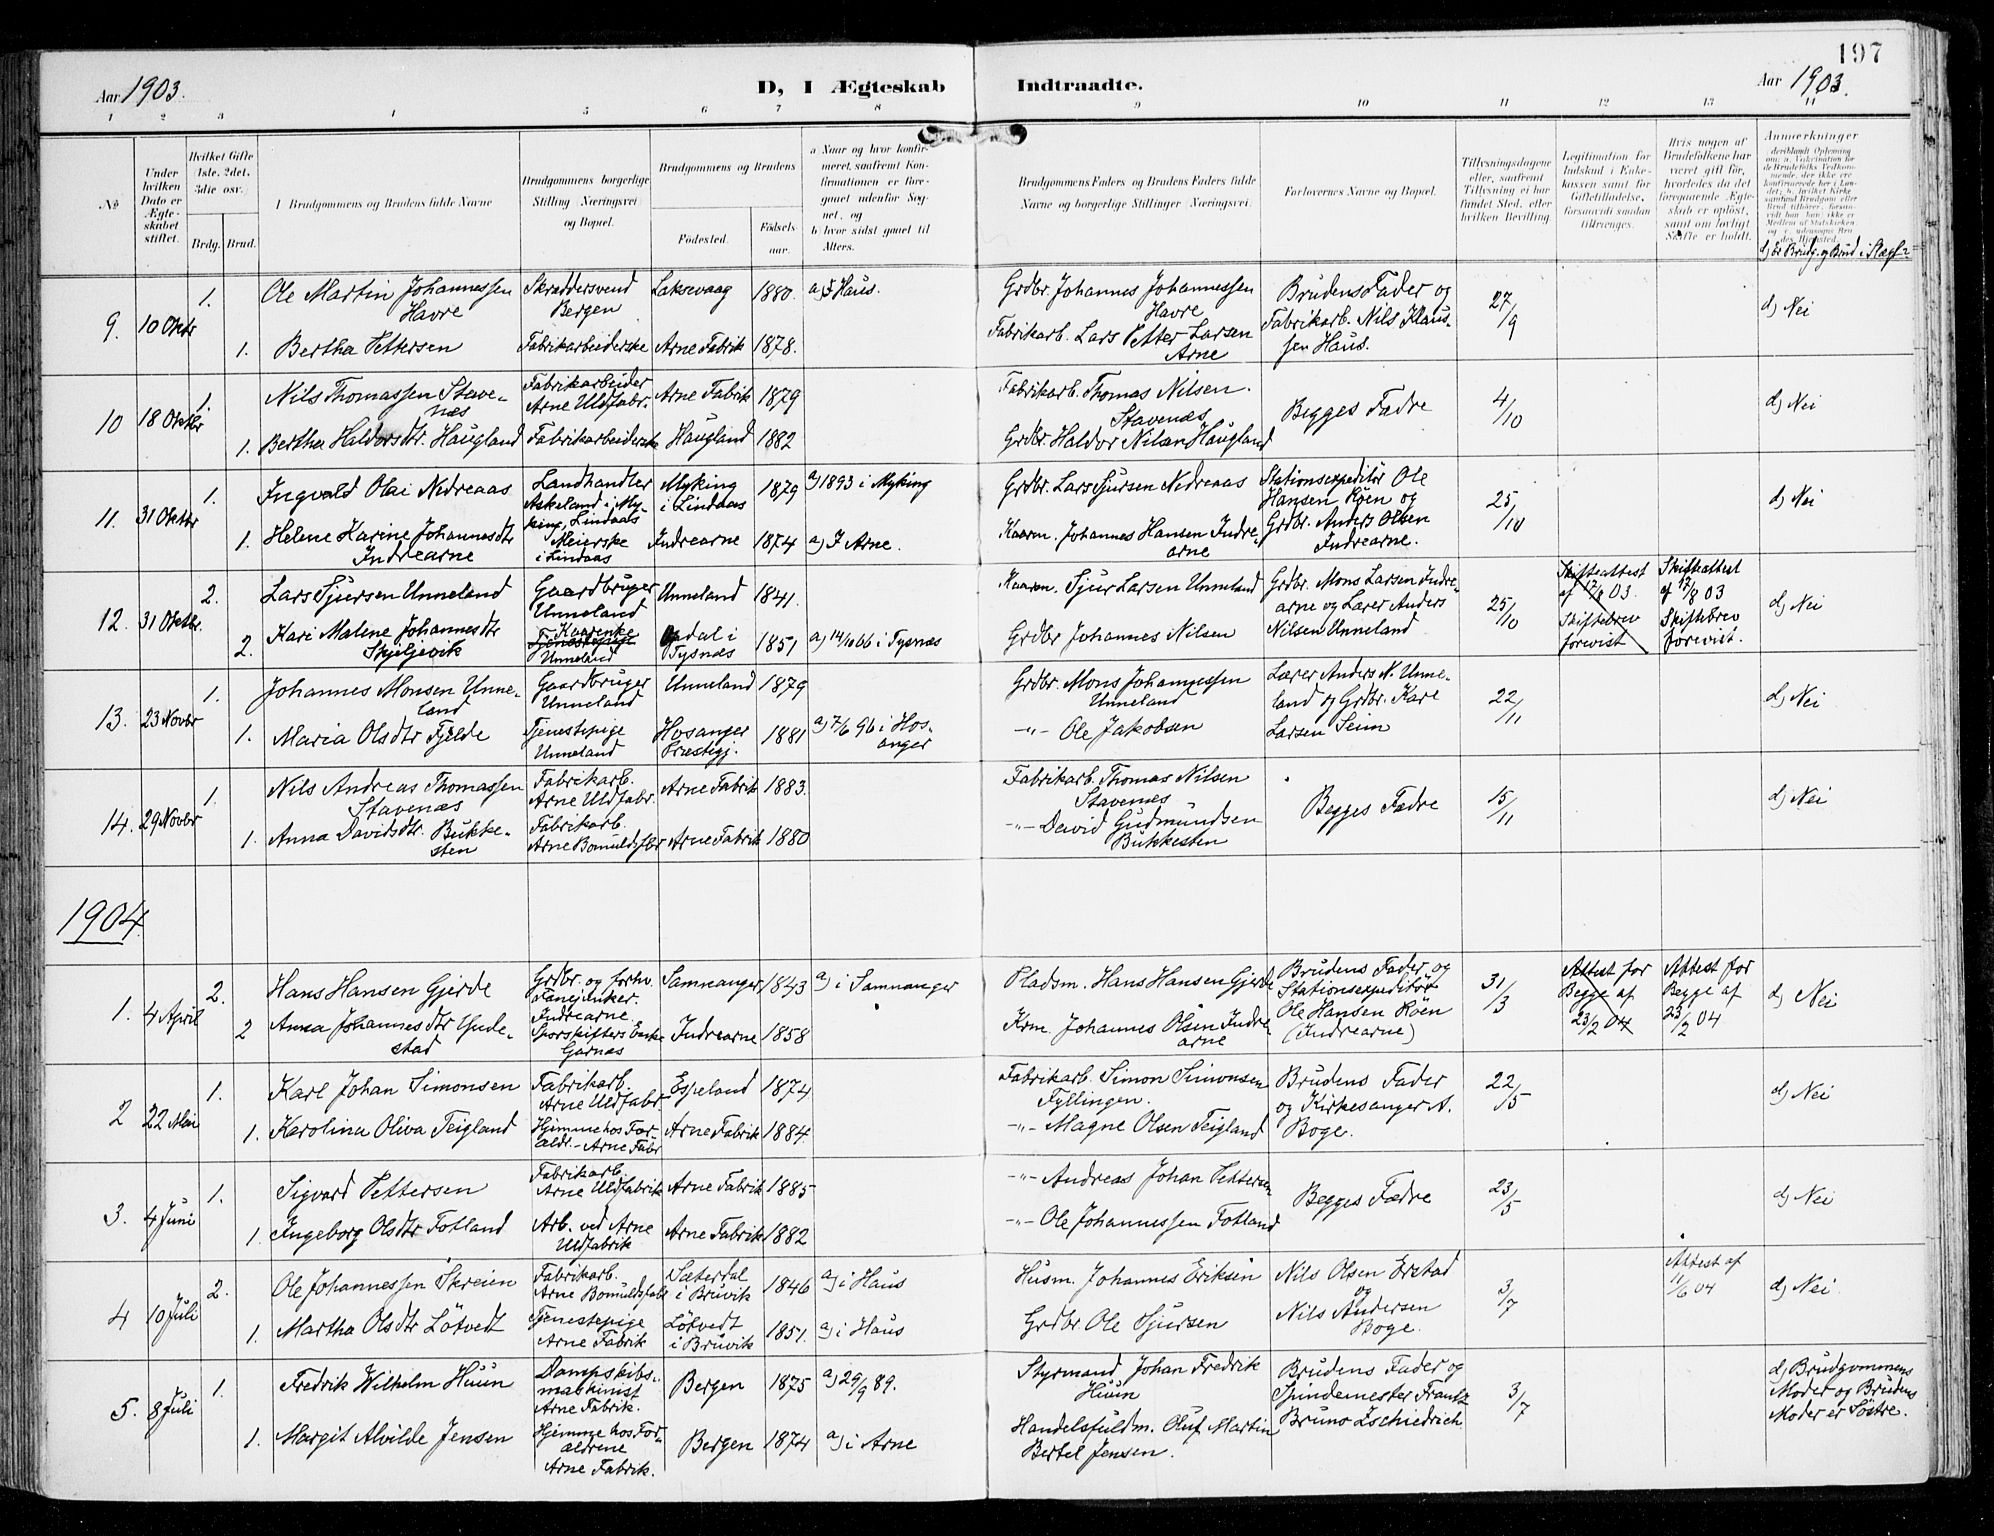 197
Aar 1903.
D, I Ægteskab Indtraadte.
Aar 1903.
1 2 3 4 5 6 7 8 9 10 11 12 13 14
No
Under hvilken Dato er Ægteskabet stiftet.
Hvilket Gifte 1ste, 2det, 3die osv.
Brdg. Brud.
Brudgommens og Brudens fulde Navne
Brudgommens borgerlige Stilling Næringsvei og Bopæl.
Brudgommens og Brudens
Fødested.
Fødselsaar.
a Naar og hvor konfirmeret, saafremt Konfirmationen er foregaaet udenfor Sognet, og
b hvor sidst gaaet til Alters.
Brudgommens Faders og Brudens Faders fulde Navne og borgerlige Stillinger Næringsvei.
Forlovernes Navne og Bopæl.
Tillysningsdagene eller, saafremt Tillysning ei har fundet Sted, efter hvilken Bevilling.
Legitimation for Indskud i Enkekassen samt for Giftetilladelse, forsaavidt saadan tiltrænges.
Hvis nogen af Brudefolkene har været gift før, hvorledes da det foregaaende Ægteskab er opløst, samt om lovligt Skifte er holdt.
Anmærkninger
d) Er Brudg. og Brud i Slægt?
9. 10 Oktbr
1. Ole Martin Johannessen
Havre
Skræddersvend
Bergen
Laksevaag 1880. a) I Haus.
Grdbr. Johannes Johannessen
Havre
Brudens Fader og
Fabrikarb. Nils Klaus-
sen Haus.
27/9
d) Nei
1. Bertha Pettersen
Fabrikarbeiderske Arne Fabrik 1878.
Fabrikarb. Lars Petter Larsen
Arne
10 18 Oktbr
1. Nils Thomassen Stave-
næs
Fabrikarbeider
Arne Uldfabr. Arne Fabrik 1879
Fabrikarb. Thomas Nilsen.
Stavenæs
Begges Fædre
4/10
d) Nei
1. Bertha Haldorsdtr. Haugland Fabrikarbeiderske Haugland 1882
Grdbr. Haldor Nilsen Haugland
11. 31 Oktbr
1. Ingvald Olai Nedreaas
Landhandler
Askeland i My-
king, Lindaas
Myking
i Lindaas
1879 a) 1893 i Myking
Grdbr. Lars Sjursen Nedreaas
Stationsexpeditör Ole
Hansen Röen og
Grdbr. Anders Olsen
Indrearne.
25/10
d) Nei
1. Helene Karine Johannesdtr
Indrearne
Meierske
i Lindaas
Indrearne 1874 a) I Arne.
Kaarm. Johannes Hansen Indre-
arne
12. 31 Oktbr.
2. Lars Sjursen Unneland
Gaardbruger
Unneland
Unneland 1841.
Kaarm. Sjur Larsen Unneland
Grdbr. Mons Larsen Indre-
arne og Lærer Anders
Nilsen Unneland
25/10
Skifteattest
af 17/8 03.
Skiftebrev
forevist
Skifteattest
af 17/8 03
Skiftebrev
forevist.
d) Nei
2. Kari Malene Johannesdtr
Skjeljevik
Kaarenke
Tjenestepige
Unneland
Opdal i
Tysnæs
1851 a) 14/10 66 i Tysnæs
Grdbr Johannes Nilsen
13. 23 Novbr
1. Johannes Monsen Unne-
land
Gaardbruger
Unneland
Unneland 1879
Grdbr. Mons Johannessen
Unneland
Lærer Anders N. Unne-
land og Grdbr. Kare
Larsen Seim
22/11
d) Nei
1. Maria Olsdtr Fjelde
Tjenestepige
Unneland
Hosanger
Præstegj.
1881 a) 7/6 96 i Hos-
anger
-"- Ole Jakobsen
14. 29 Novbr
1. Nils Andreas Thomassen
Stavenæs
Fabrikarb.
Arne Uldfabr. Arne Fabrik 1883.
Fabrikarb. Thomas Nilsen
Stavenæs
Begges Fædre
15/11
d) Nei
1. Anna Davidsdtr. Bukke-
sten
Fabrikarb.
Arne Bomuldsfbr Arne Fabrik 1880
-"- David Gudmundsen
Bukkesten
1904.
1. 4 April
2. Hans Hansen Gjerde
Grdbr. og forhv.
Lanejenker.
Indrearne.
Samnanger 1843 a) i Samnanger
Pladsm. Hans Hansen Gjerde
Brudens Fader og
Stationsexpeditör
Ole Hansen Röen
(Indrearne)
31/3
Attest for
Begge af
23/2 04
Attest for
Begge af
23/2 04
d) Nei
2 Anna Johannesdtr Yndestad
Sporskifters Enke
Garnæs
Indrearne 1858
Krm. Johannes Olsen Indre-
arne
2 22 Mai
1. Karl Johan Simonsen
Fabrikarb.
Arne Uldfabr. Espeland 1874
Fabrikarb. Simon Simonsen
Fyllingen.
Brudens Fader
og Kirkesanger A.
Boge.
22/5
d) Nei
1. Karolina Oliva Teigland
Hjemme hos For-
ældr. - Arne Fabr Arne Fabrik 1884
-"- Magne Olsen Teigland
3. 4 Juni
1. Sigvard Pettersen
Fabrikarb.
Arne Uldfabrik Arne Fabrik 1885
-"- Andreas Johan Pettersen
Begges Fædre
23/5
d) Nei
1. Ingeborg Olsdtr Fotland
Arb. ved Arne
Uldfabrik Arne Fabrik 1882
-"- Ole Johannessen Fotland
4 10 Juli
2. Ole Johannessen Skreien
Fabrikarb.
Arne Bomuldsfabr
Sæterdal
i Bruvik
1846 a) i Haus
Husm. Johannes Eriksen
Nils Olsen Erstad
og
Nils Andersen
Boge.
3/7
Attest af
11/6 04
d) Nei.
1. Martha Olsdtr Lötvedt
Tjenestepige
Arne Fabrik
Lötvedt
i Bruvik
1851. a) i Haus
Grdbr. Ole Sjursen
5. 8 Juli
1. Fredrik Wilhelm Huun
Dampskibs-
maskinist
Arne Fabrik.
Bergen 1875 a) 29/9 89.
Styrmand Johan Fredrik
Huun
Brudens Fader og
Spindemester Frantz
Bruno Zschiedrich
3/7
d) Brudgommens
Moder og Brudens
Moder er Söstre.
1. Margit Alvilde Jensen
Hjemme hos For-
ældrene
Arne Fabrik.
Bergen 1874 a) i Arne
Handelsfuldm. Oluf Martin
Bertel Jensen.